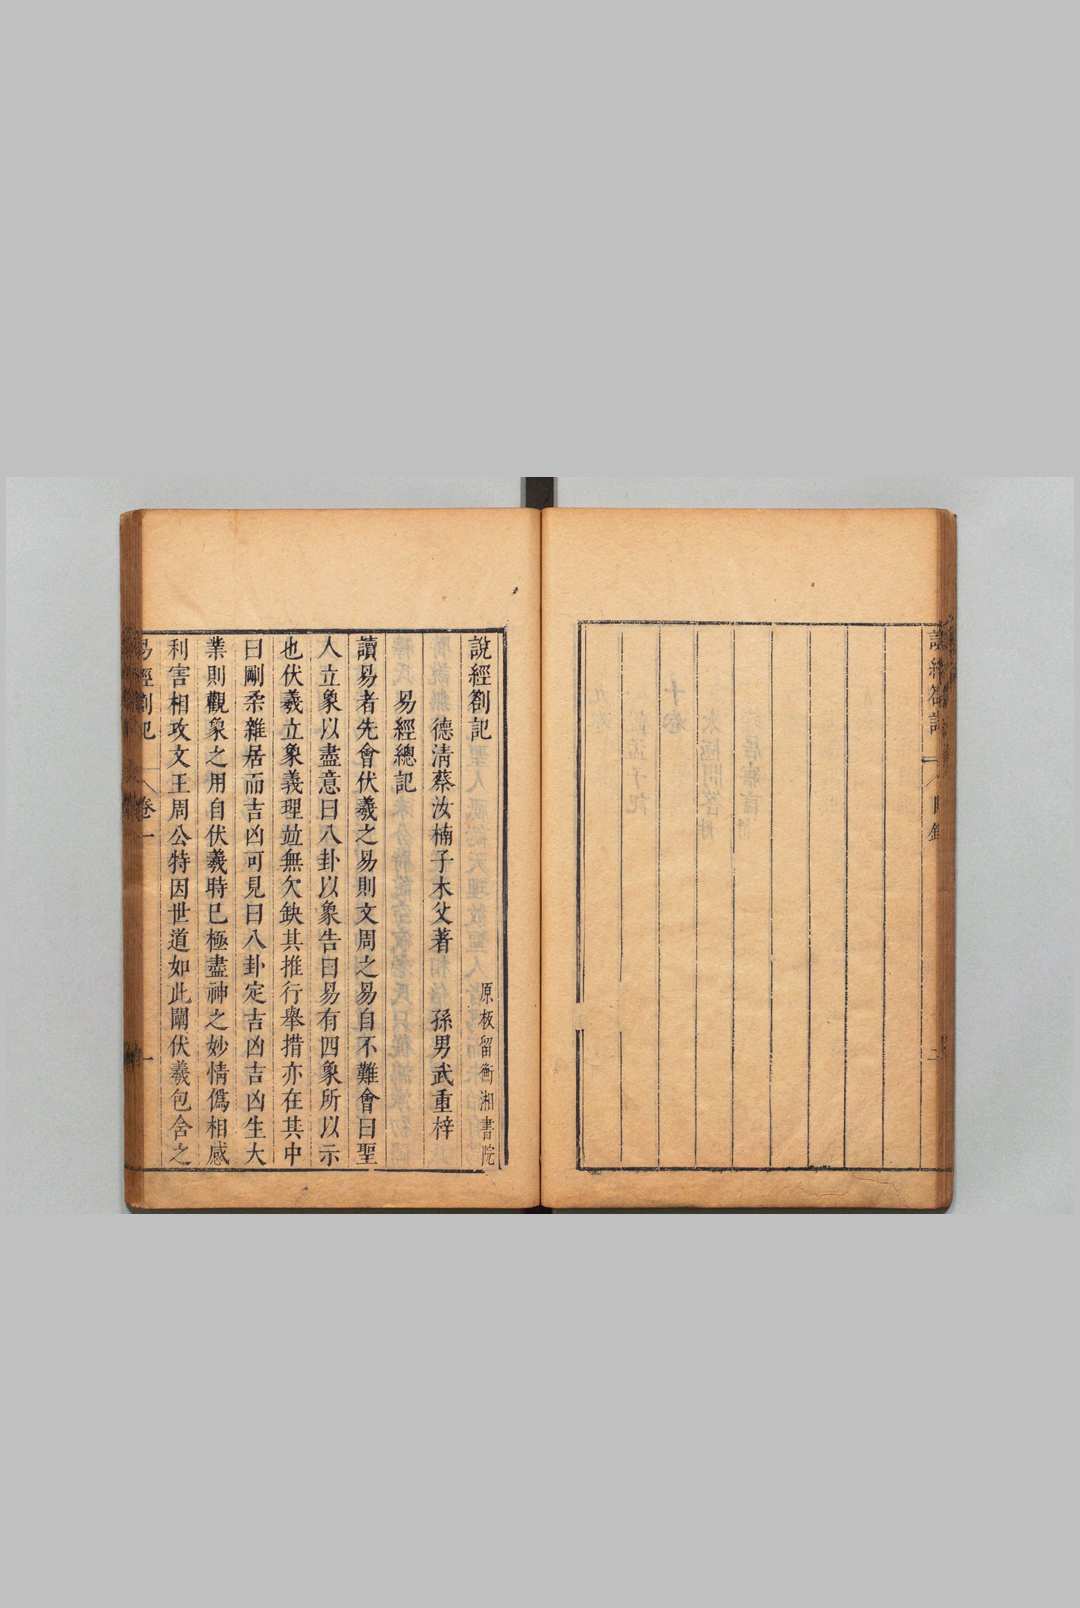 說經劄記
原板留衡湘書院
德清蔡汝楠子木父著 孫男武重梓
易經總記
讀易者先會伏羲之易則文周之易自不難會曰聖
人立象以盡意曰八卦以象告曰易有四象所以示
也伏羲立象義理竝無欠缺其推行舉措亦在其中
曰剛柔雜居而吉凶可見曰八卦定吉凶吉凶生大
業則觀象之用自伏羲時已極盡神之妙情僞相感
利害相攻文王周公特因世道如此闡伏羲包含之
易經劄記 卷一 一